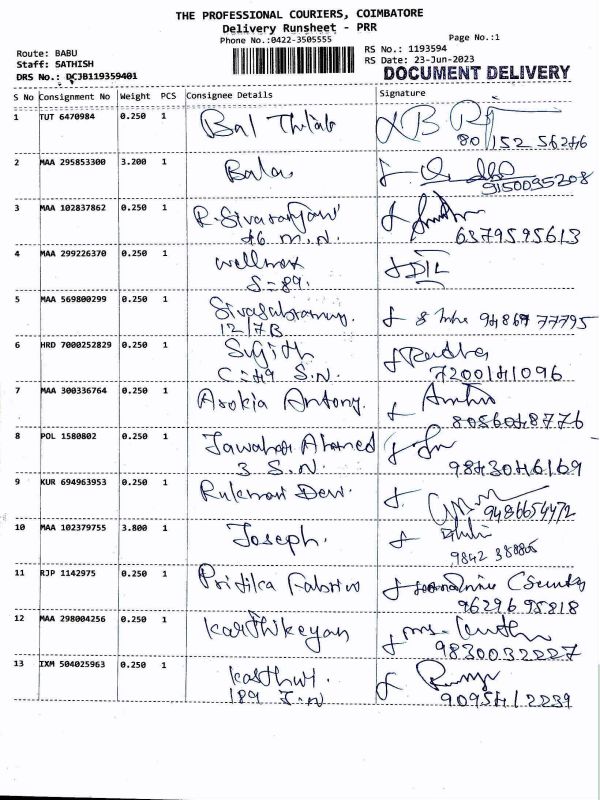 THE PROFESSIONAL COURIERS, COIMBATORE
Delivery Runsheet - PRR
Phone No.:0422-3505555
Page No.:1
Route: BABU
RS No.: 1193594
Staff: SATHISH
RS Date: 23-Jun-2023
DRS No.: DCJB119359401
DOCUMENT DELIVERY
S No Consignment No Weight PCS Consignee Details Signature
1 TUT 6470984 0.250 1 Bal Thilab
2 MAA 295853300 3.200 1 Bala
9150095208
3 MAA 102837862 0.250 1 R. Sivaranjani
46 M.N. 6379595613
4 MAA 299226370 0.250 1
S=89.
5 MAA 569800299 0.250 1
12/7B
6 HRD 7000252829 0.250 1 Sujith Radha
C=49 S.N. 7200141096
7 MAA 300336764 0.250 1 Arokia Antony.
8056048776
8 POL 1580802 0.250 1 Jawahar Ahamed
3 S.N. 9843046169
9 KUR 694963953 0.250 1 Rukmani Devi.
9486654472
10 MAA 102379755 3.800 1 Joseph.
11 RJP 1142975 0.250 1
96296 95818
12 MAA 298004256 0.250 1 Karthikeyan
9830032227
13 IXM 504025963 0.250 1
189 S.N 9095412239